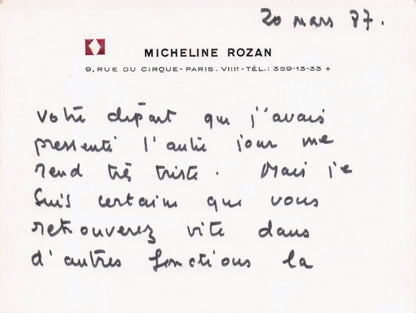 20 mars 87.
MICHELINE ROZAN
9, RUE DU CIRQUE - PARIS. VIIIe - TÉL.: 359-13-33 +
Votre départ que j'avais
pressenti l'autre jour me
rend très triste. Mais je
suis certaine que vous
retrouverez vite dans
d'autres fonctions la